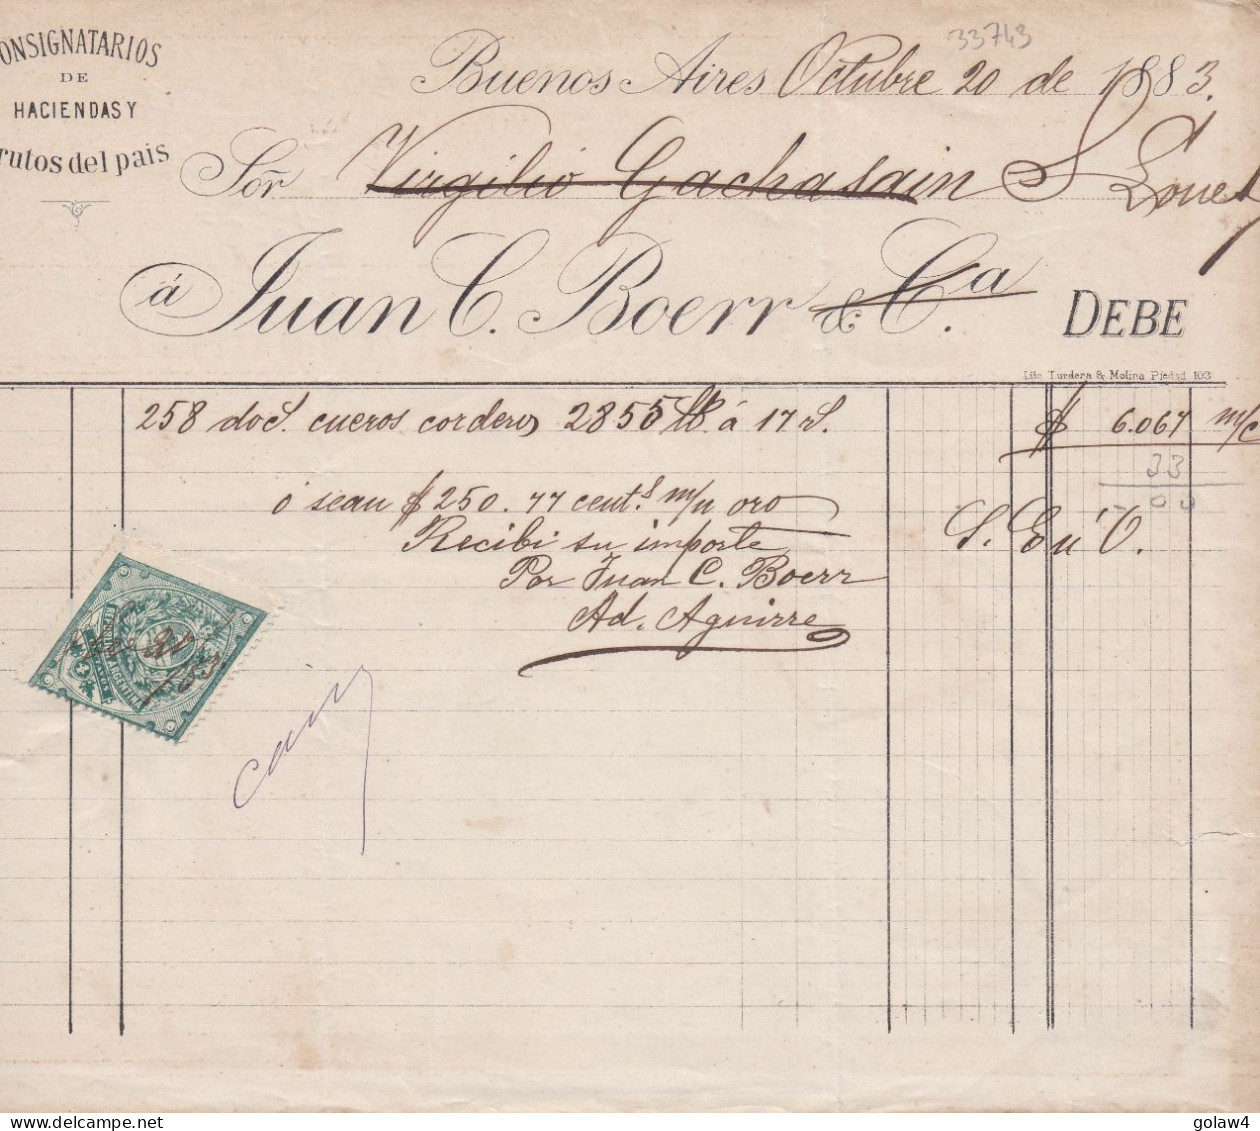 ONSIGNATARIOS
DE
HACIENDAS Y
rutos del pais
33743
Buenos Aires Octubre 20 de 1883.
Sor Virgilio Gachasain S.
á Juan C. Boerr & Ca. DEBE
Lito Turdera & Molina Piedad 103
258 docs. cueros corderos 2855 lb. á 17 rs. $ 6.067 m/c
33
00
ó sean $ 250.77 cent.s m/n oro
S. E. ú O.
Recibí su importe
Por Juan C. Boerr
Ad. Aguirre
REPUBLICA ARGENTINA
golaw4